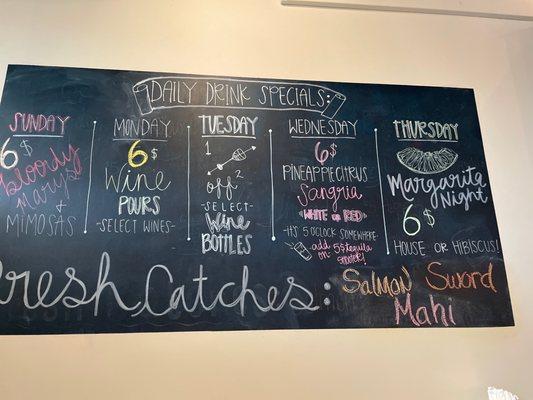 DAILY DRINK SPECIALS:
SUNDAY
6$
Bloody
Marys
&
MIMOSAS
MONDAY
6$
Wine
POURS
-SELECT WINES-
TUESDAY
1
2
off
-SELECT-
Wine
BOTTLES
WEDNESDAY
6$
PINEAPPLECITRUS
Sangria
WHITE or RED
-IT'S 5 O'CLOCK SOMEWHERE-
add 5$ tequila
on
THURSDAY
6$
Margarita
Night
6$
HOUSE OR HIBISCUS!
Fresh Catches:
Salmon Sword
Mahi